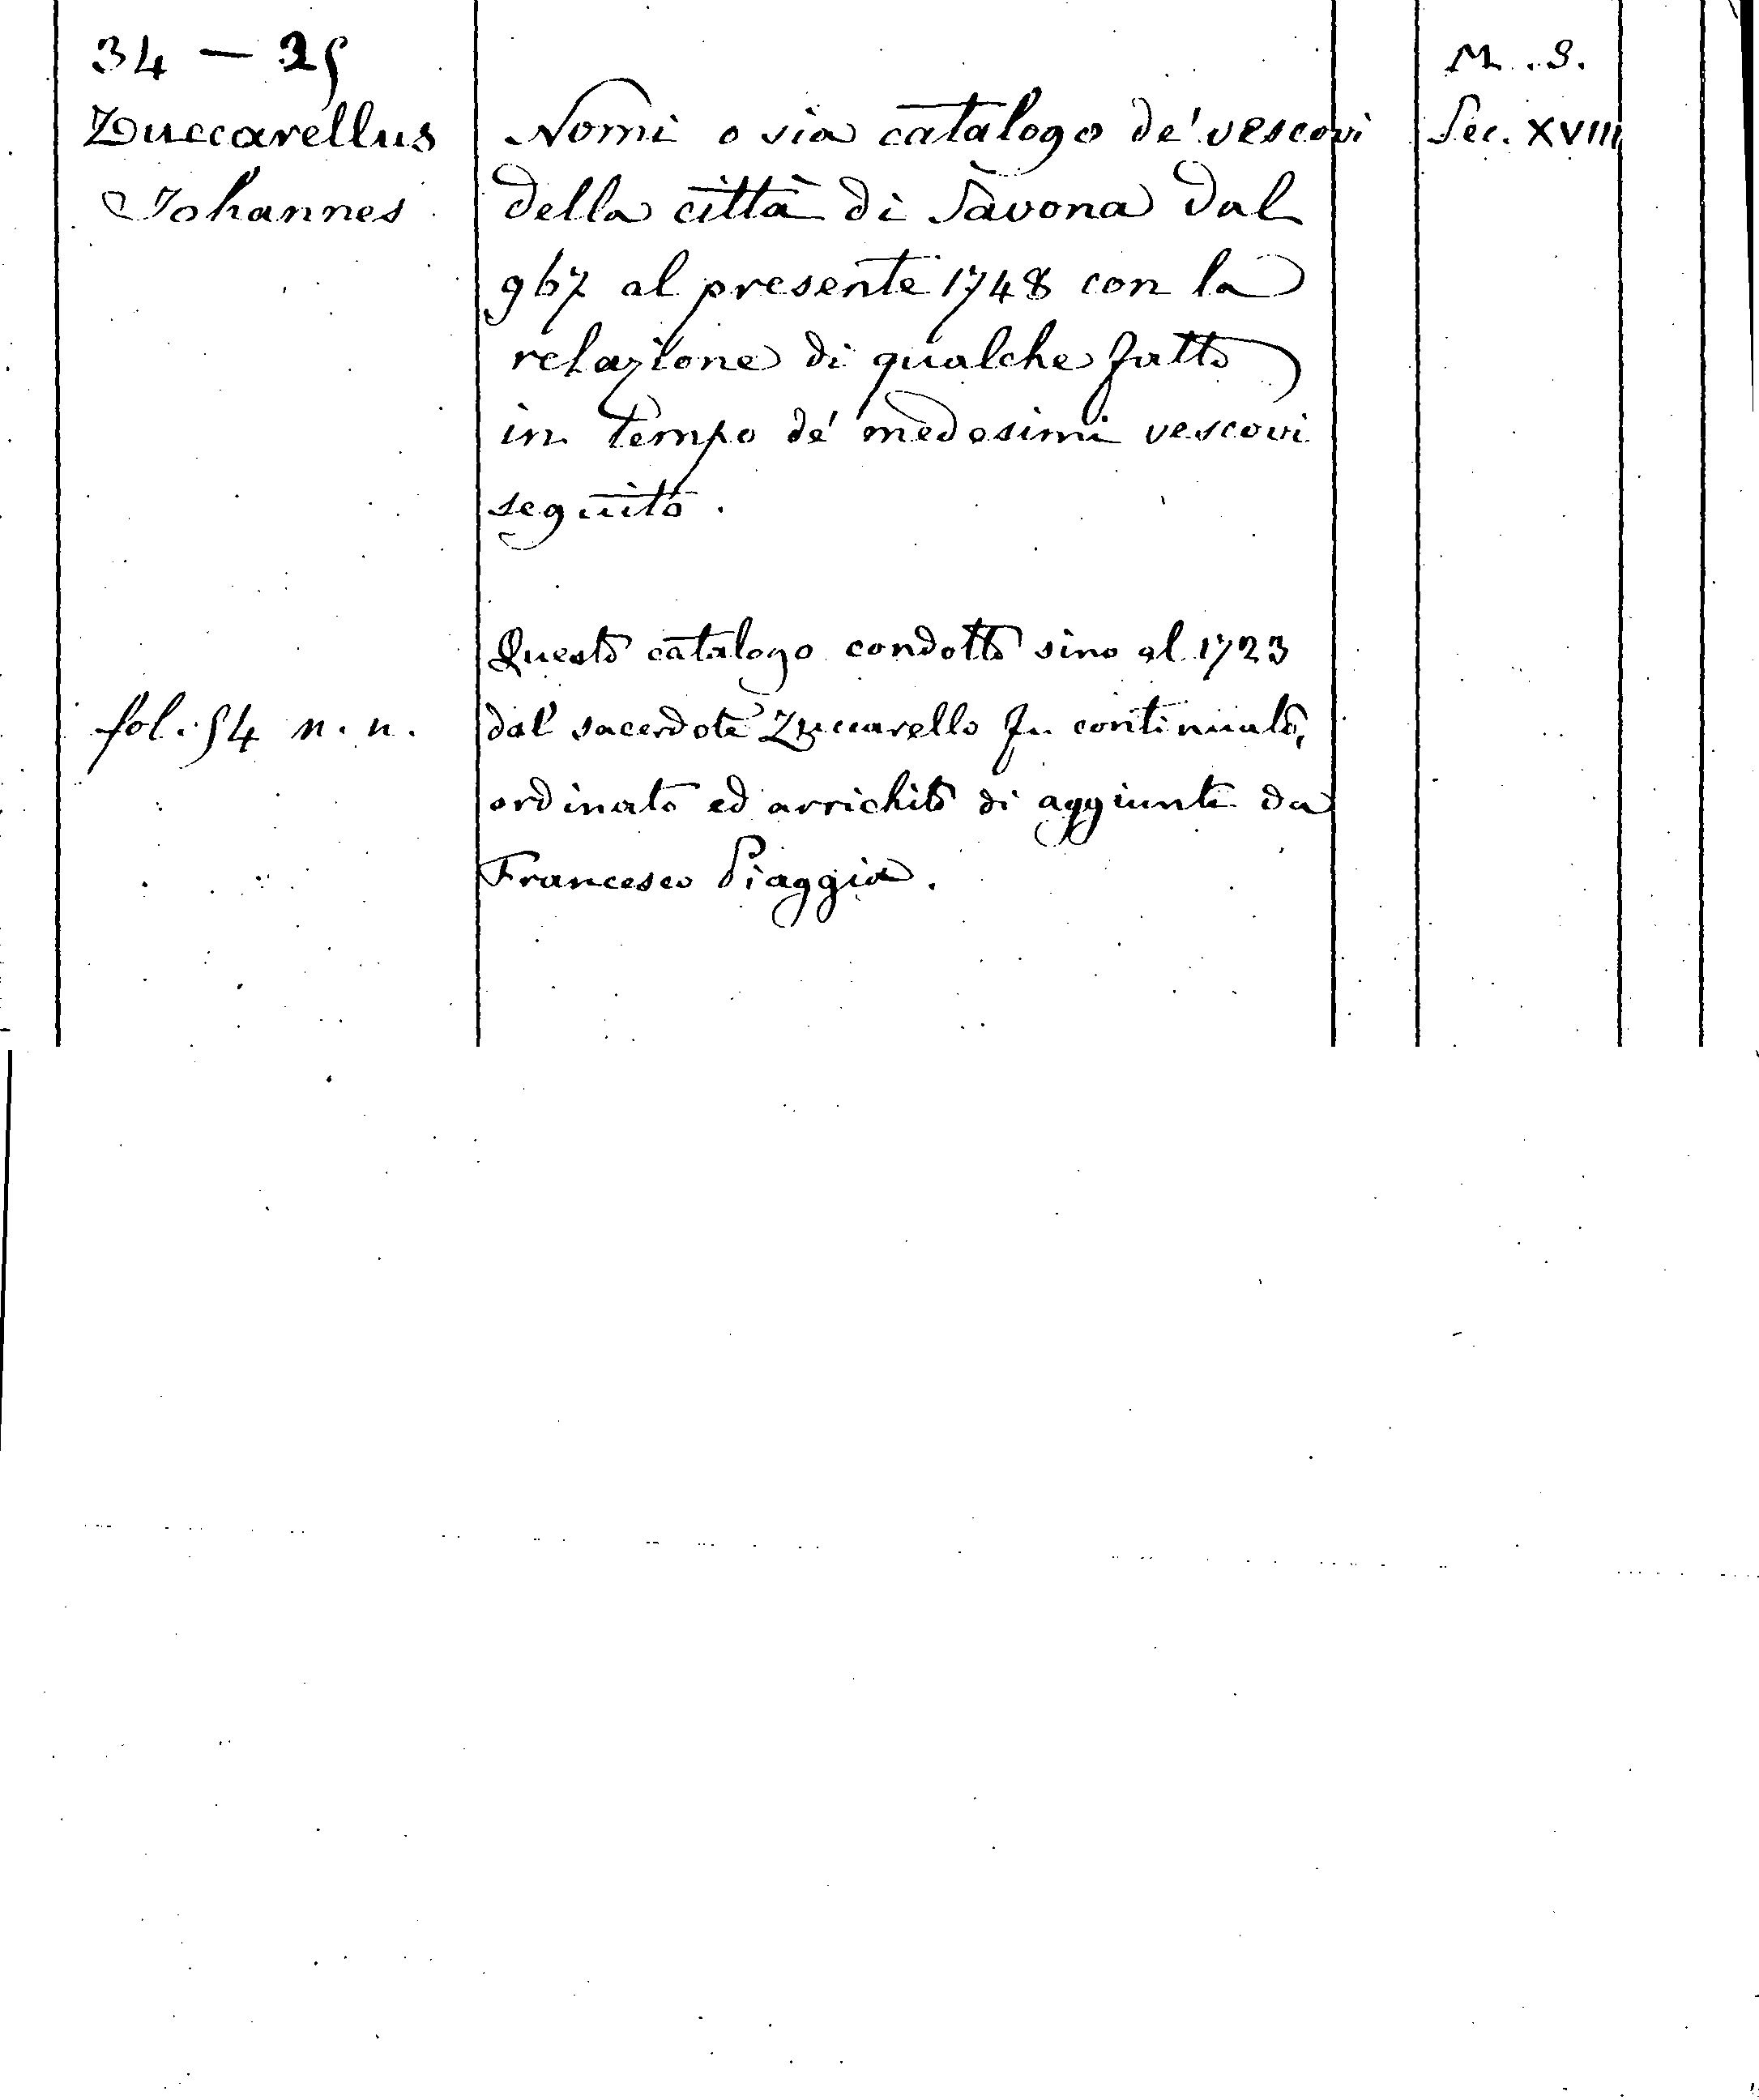 34 — 25
Zuccarellus
Johannes
fol. 54 n. n.
Nomi o sia catalogo de' vescovi
della città di Savona dal
967 al presente 1748 con la
relazione di qualche fatto
in tempo de' medesimi vescovi
seguito.
Questo catalogo condotto sino al 1723
dal sacerdote Zuccarello fu continuato,
ordinato ed arrichito di aggiunte da
Francesco Piaggia.
M.S.
Sec. XVIII